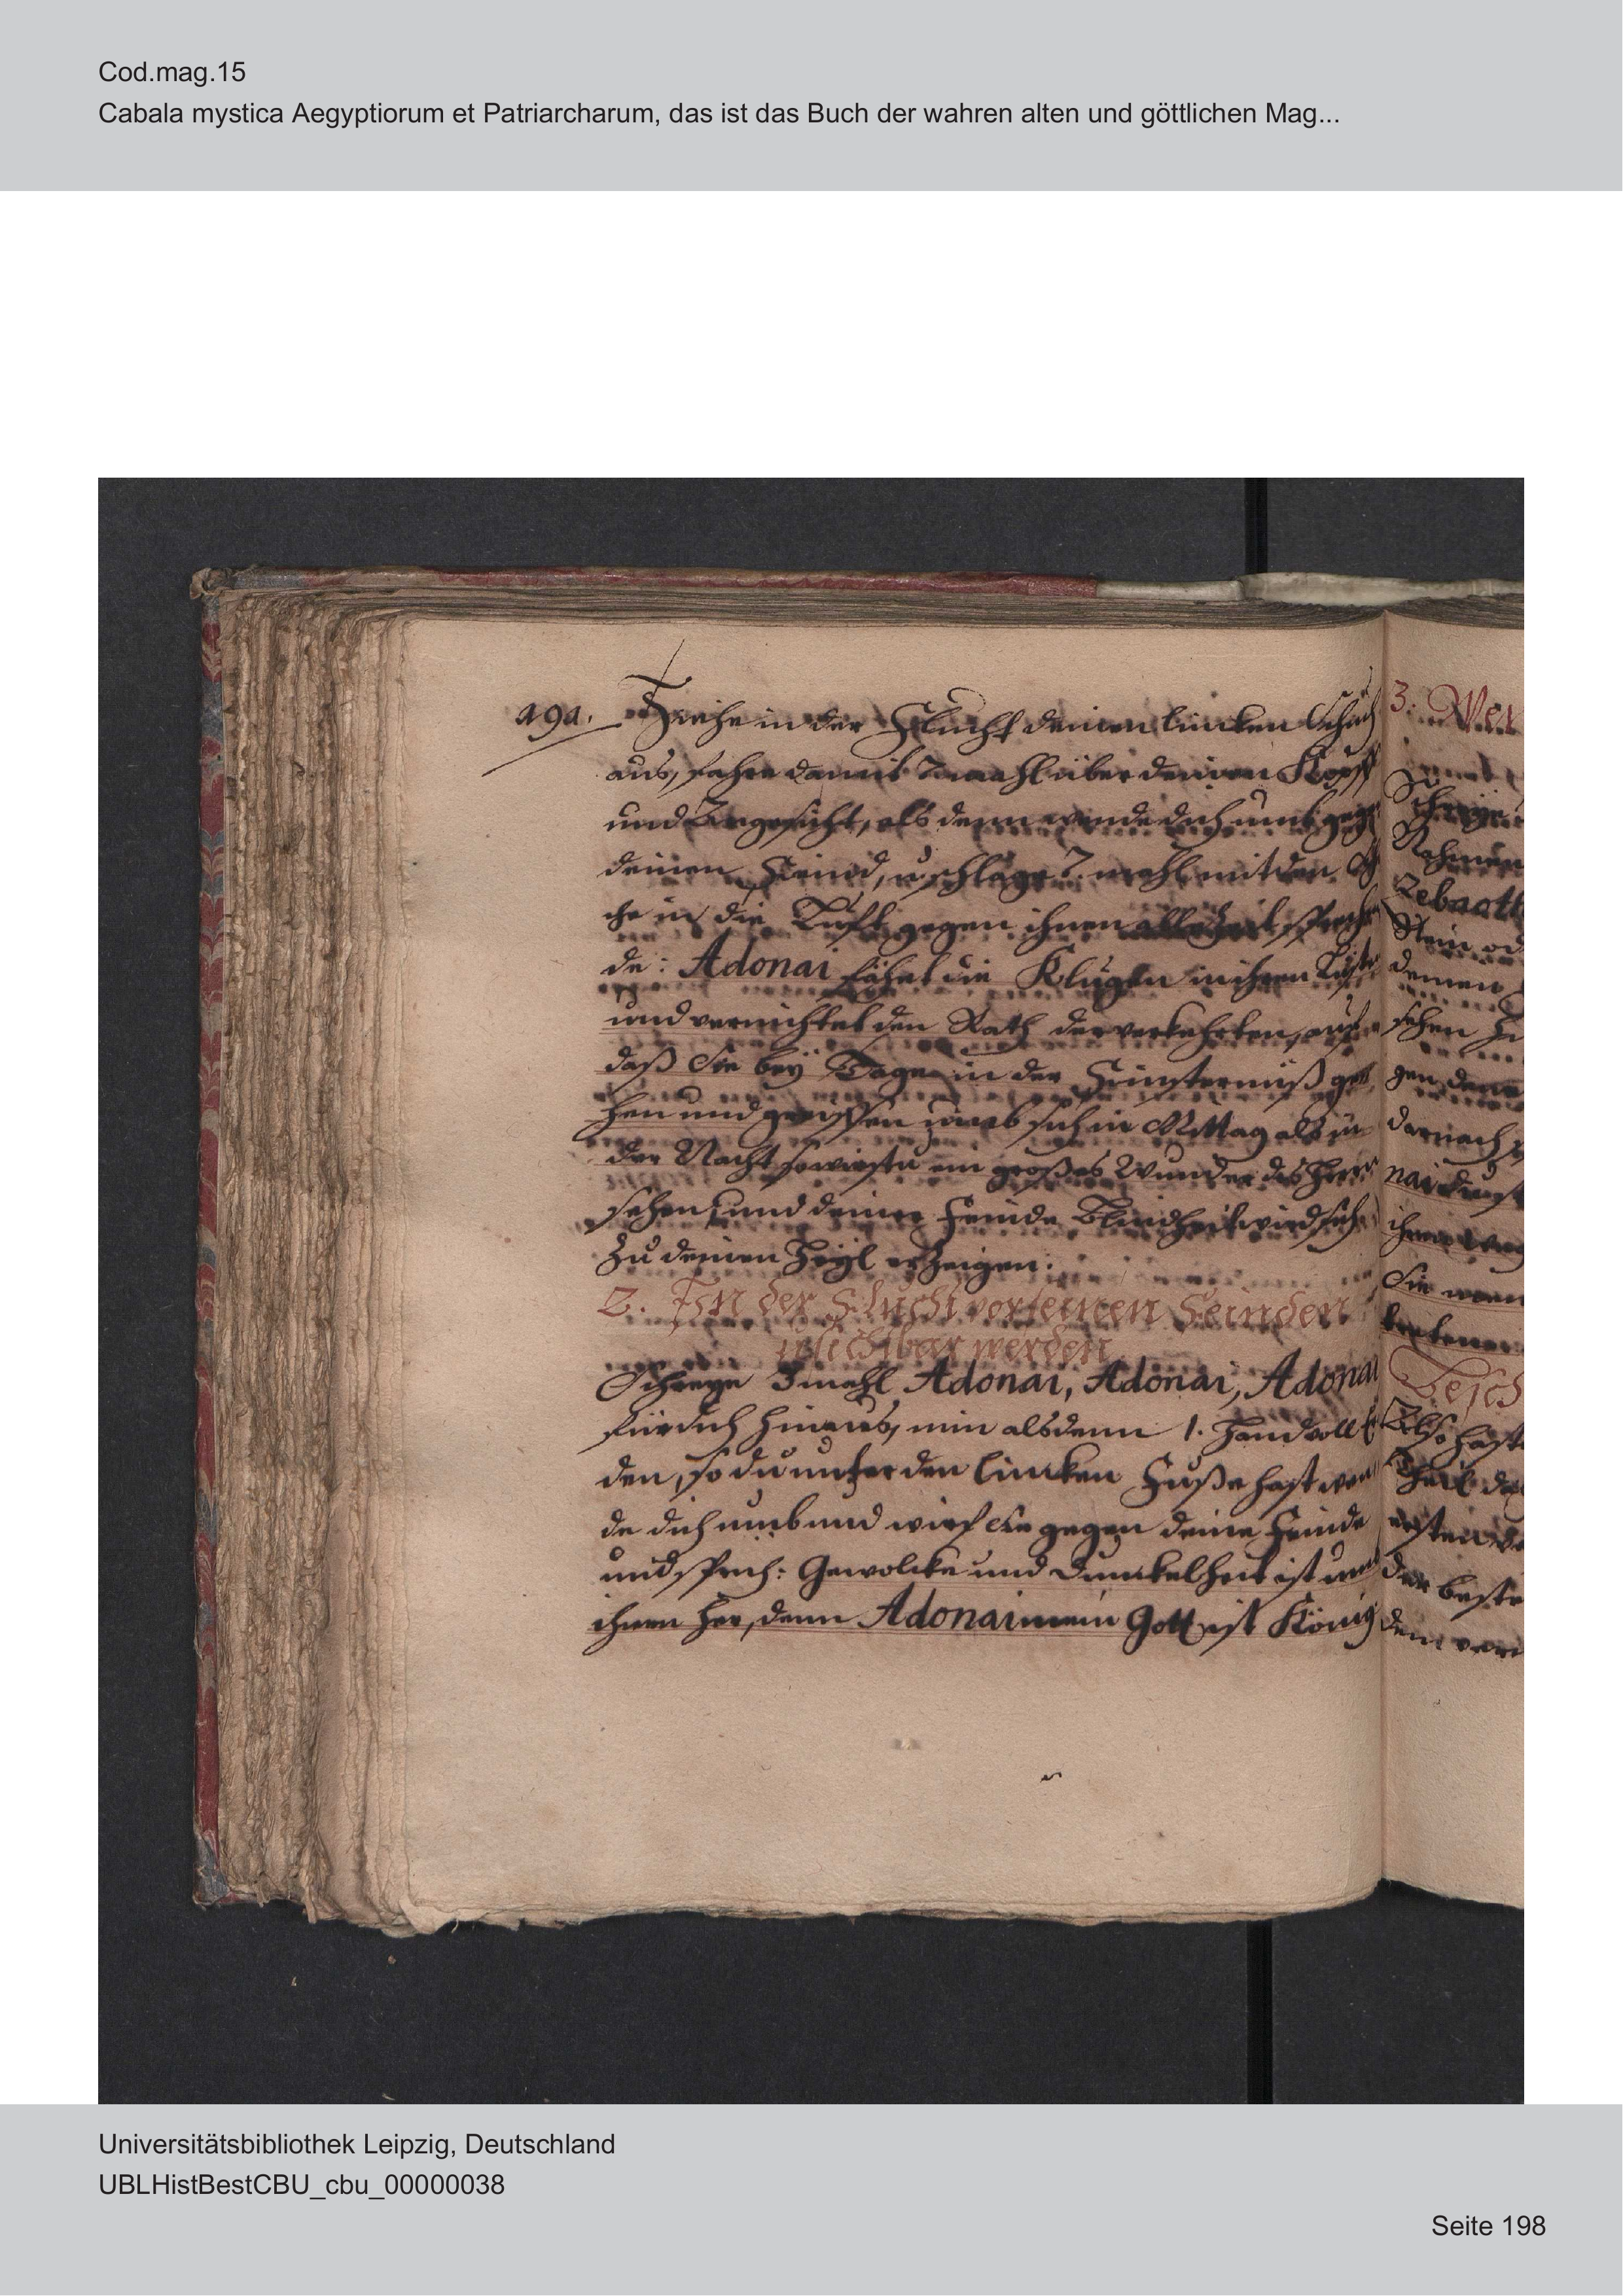 Cod.mag.15
Cabala mystica Aegyptiorum et Patriarcharum, das ist das Buch der wahren alten und göttlichen Mag...
Ziehe in der Flucht deinen lincken Schuch
aus, fahre damit 7 mahl über deinen Kopff
und Angesicht, als denn wende dich umb gegen
deinen Feind, u. schlage 7. mahl mit den Sch
he in die Lufft gegen ihnen allezeit sprechen
de: Adonai fähet die Klugen in ihren Listen
und vernichtet den Rath der verkehrten, auf
daß Sie beÿ Tage in der Finsternuß ge
hen und greiffen umb sich in Mittag als in
der Nacht so wirstu ein großes Wunder des Herrn
sehen, und deiner Feinde Blindheit wird sich
zu deinen Heÿl erzeigen:
2. In der Flucht vor seinen Feinden
unsichtbar werden
Schreye 3 mahl Adonai, Adonai, Adonai
für dich hinaus, nim alsdenn 1. Handvoll
den, so du unter den lincken Fuße hast wen
de dich umb und wirf Sie gegen deine Feinde
und sprich: Gewolcke und Dunckelheit ist umb
ihnen her, denn Adonai mein Gott ist König
3. Wer
Nahmen
Zebaoth
Stein od
deinen
sehen
gen den
darnach
nai
ihren
Sie
Also hast
Theil de
ersten
der beste
dem
Universitätsbibliothek Leipzig, Deutschland
UBLHistBestCBU_cbu_00000038
Seite 198